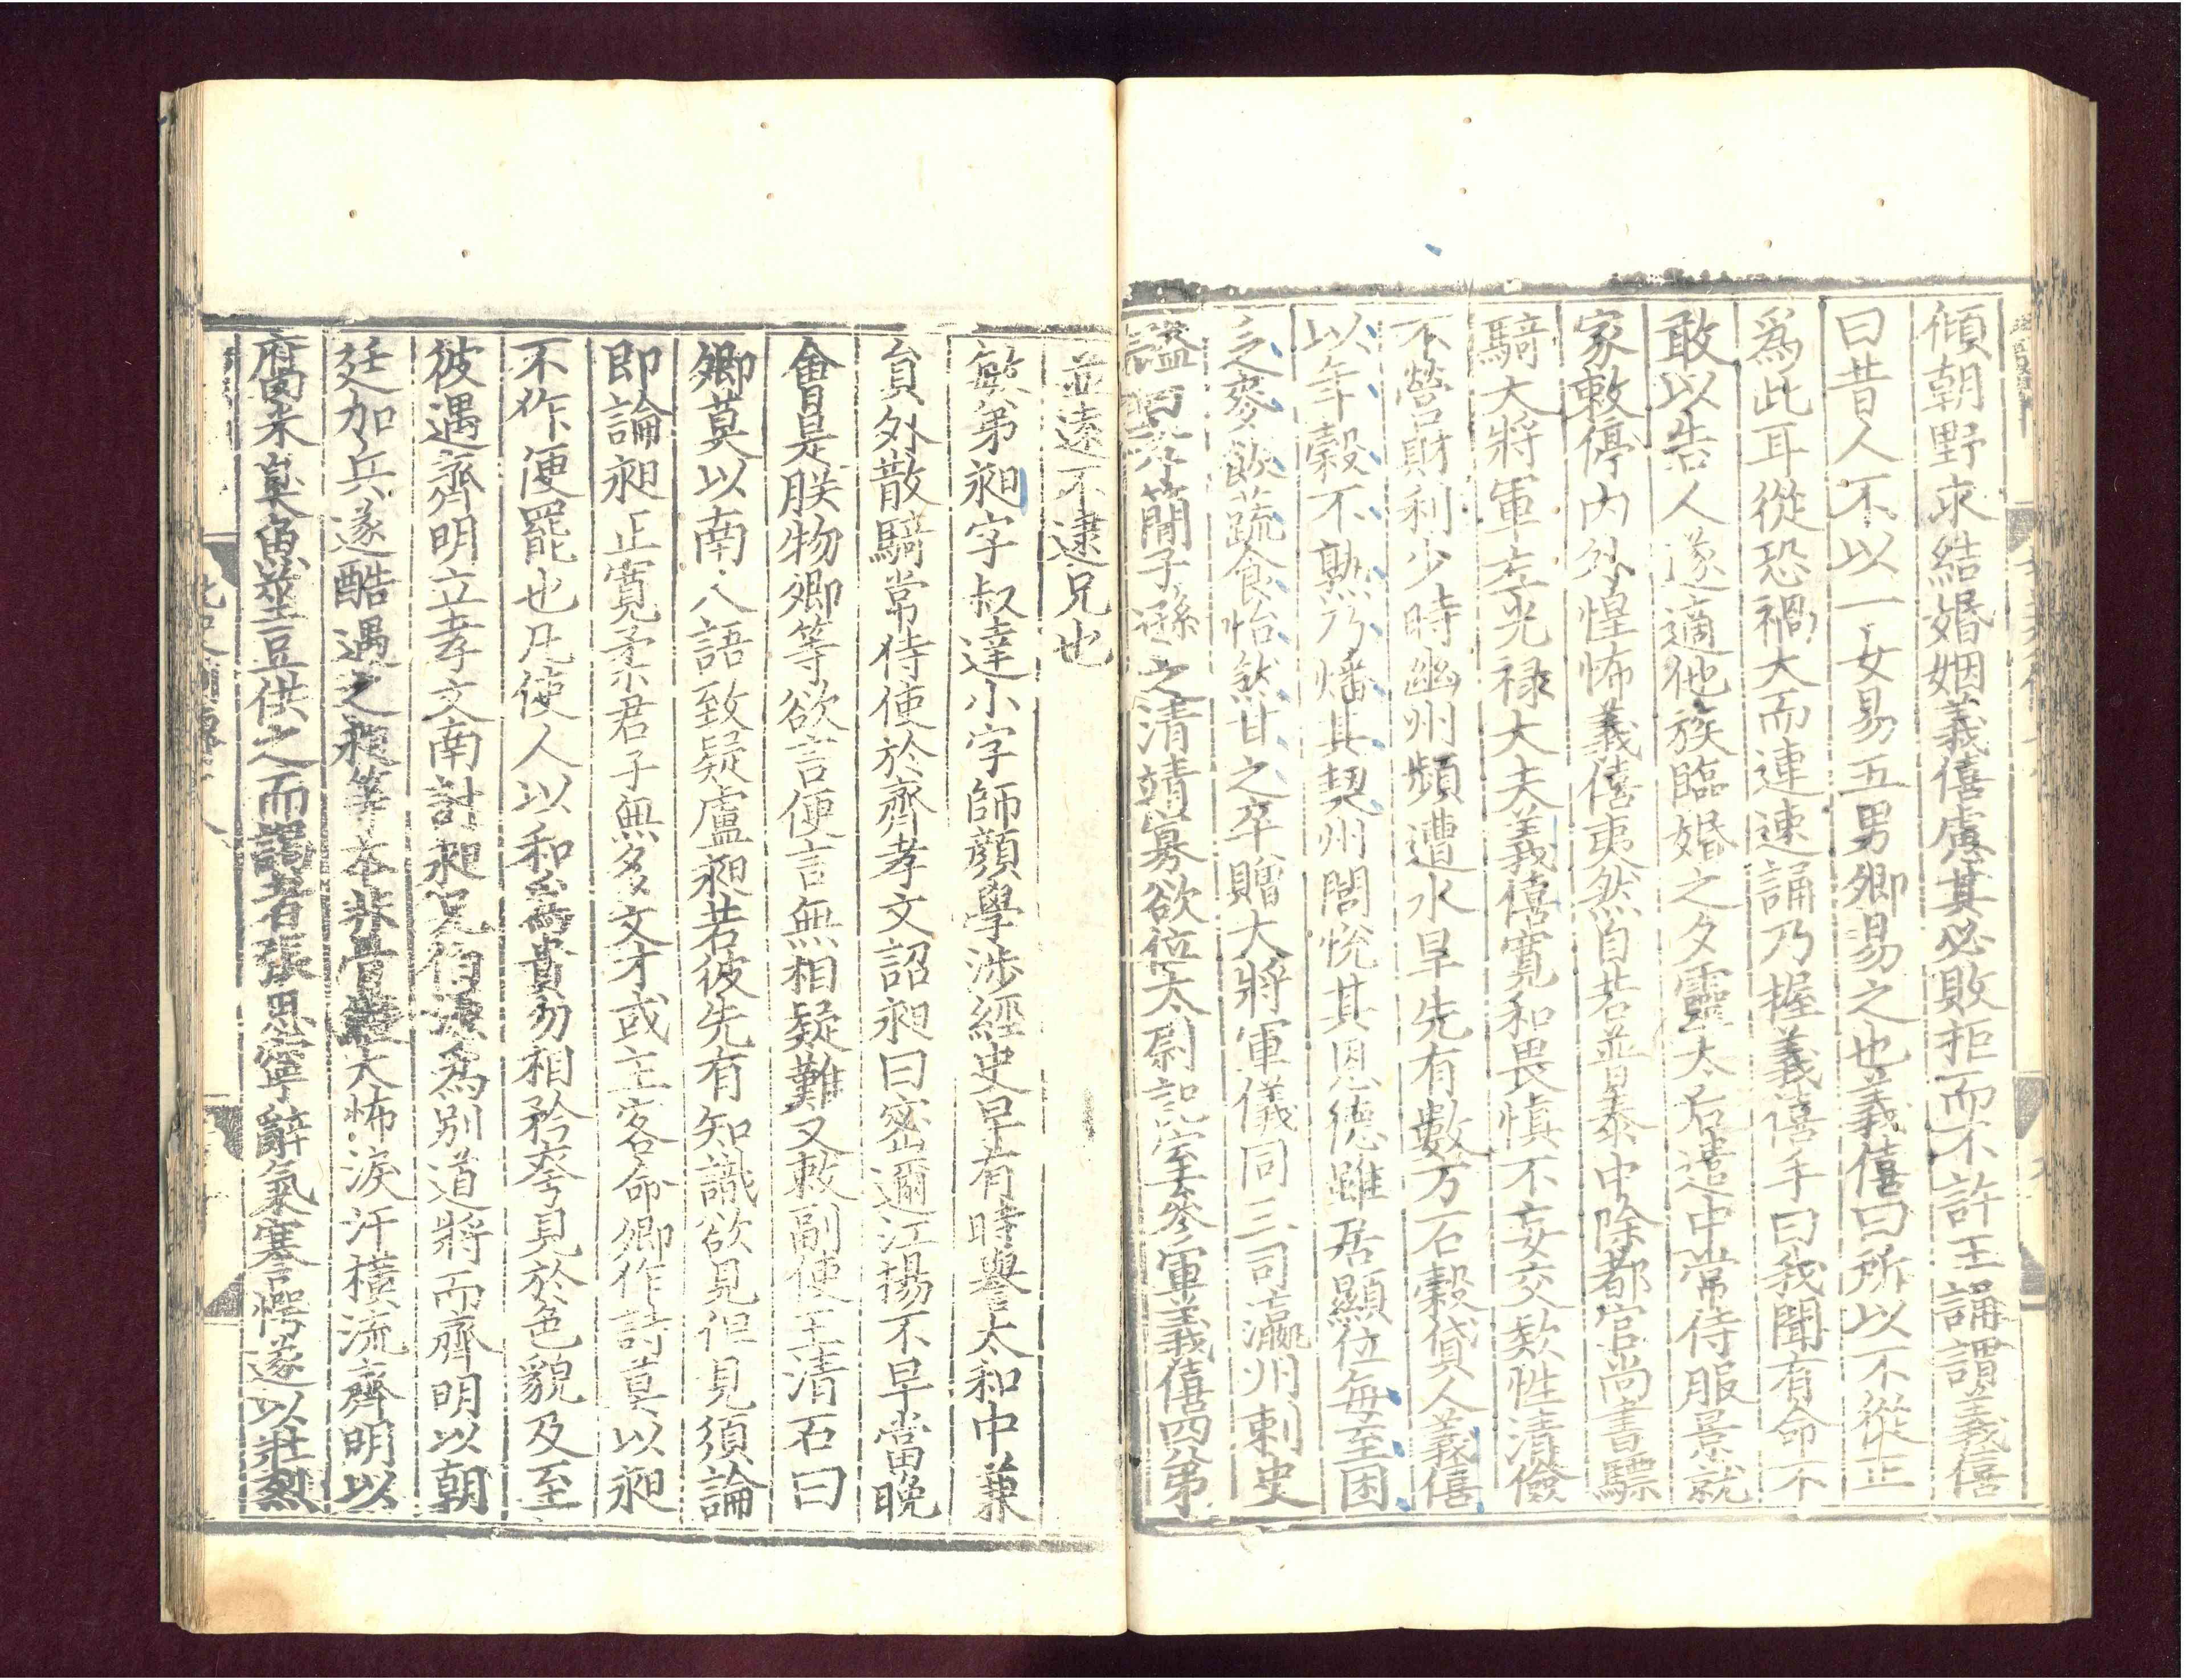 傾朝野求結婚姻義僖慮其必敗拒而不許王誦謂義僖
曰昔人不以一女易五男卿易之也義僖曰所以不從正
爲此耳從恐禍大而連速誦乃握義僖手曰我聞有命不
敢以告人遂適他族臨婚之夕靈太后遣中常侍服景就
家敕停內外惶怖義僖夷然自若普泰中除都官尚書驃
騎大將軍左光祿大夫義僖寬和畏慎不妄交款性清儉
不營財利少時幽州頻遭水旱先有數万石穀貸人義僖
以年穀不熟乃燔其契州閭悅其恩德雖居顯位每至困
乏麥飯蔬食怡然甘之卒贈大將軍儀同三司瀛州刺史
謚曰孝簡子遜之清靖寡欲位太尉記室參軍義僖四弟
並遠不逮兄也
敏弟昶字叔達小字師顏學涉經史早有時譽太和中兼
員外散騎常侍使於齊孝文詔昶曰密邇江揚不早當晚
會是朕物卿等欲言便言無相疑難又敕副使王清石曰
卿莫以南人語致疑盧昶若彼先有知識欲見但見須論
即論昶正寬柔君子無多文才或主客命卿作詩莫以昶
不作便罷也凡使人以和爲貴勿相矜夸見於色貌及至
彼遇齊明立孝文南討昶兄伯源爲別道將而齊明以朝
廷加兵遂酷遇之昶等本非骨鯁大怖淚汗橫流齊明以
腐米臭魚莝豆供之而謁者張思寧辭氣謇愕遂以壯烈